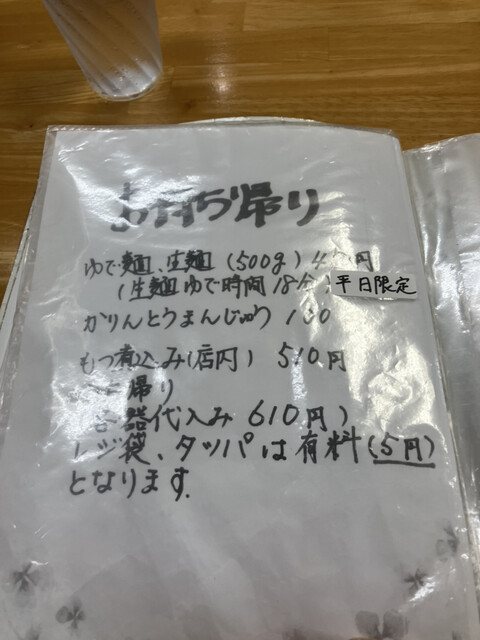 お持ち帰り
ゆで麺、生麺(500g) 4 円
(生麺ゆで時間18分)
平日限定
かりんとうまんじゅう 100
もつ煮込み(店内) 510円
帰り
容器代込み 610円)
レジ袋、タッパは有料(5円)
となります。